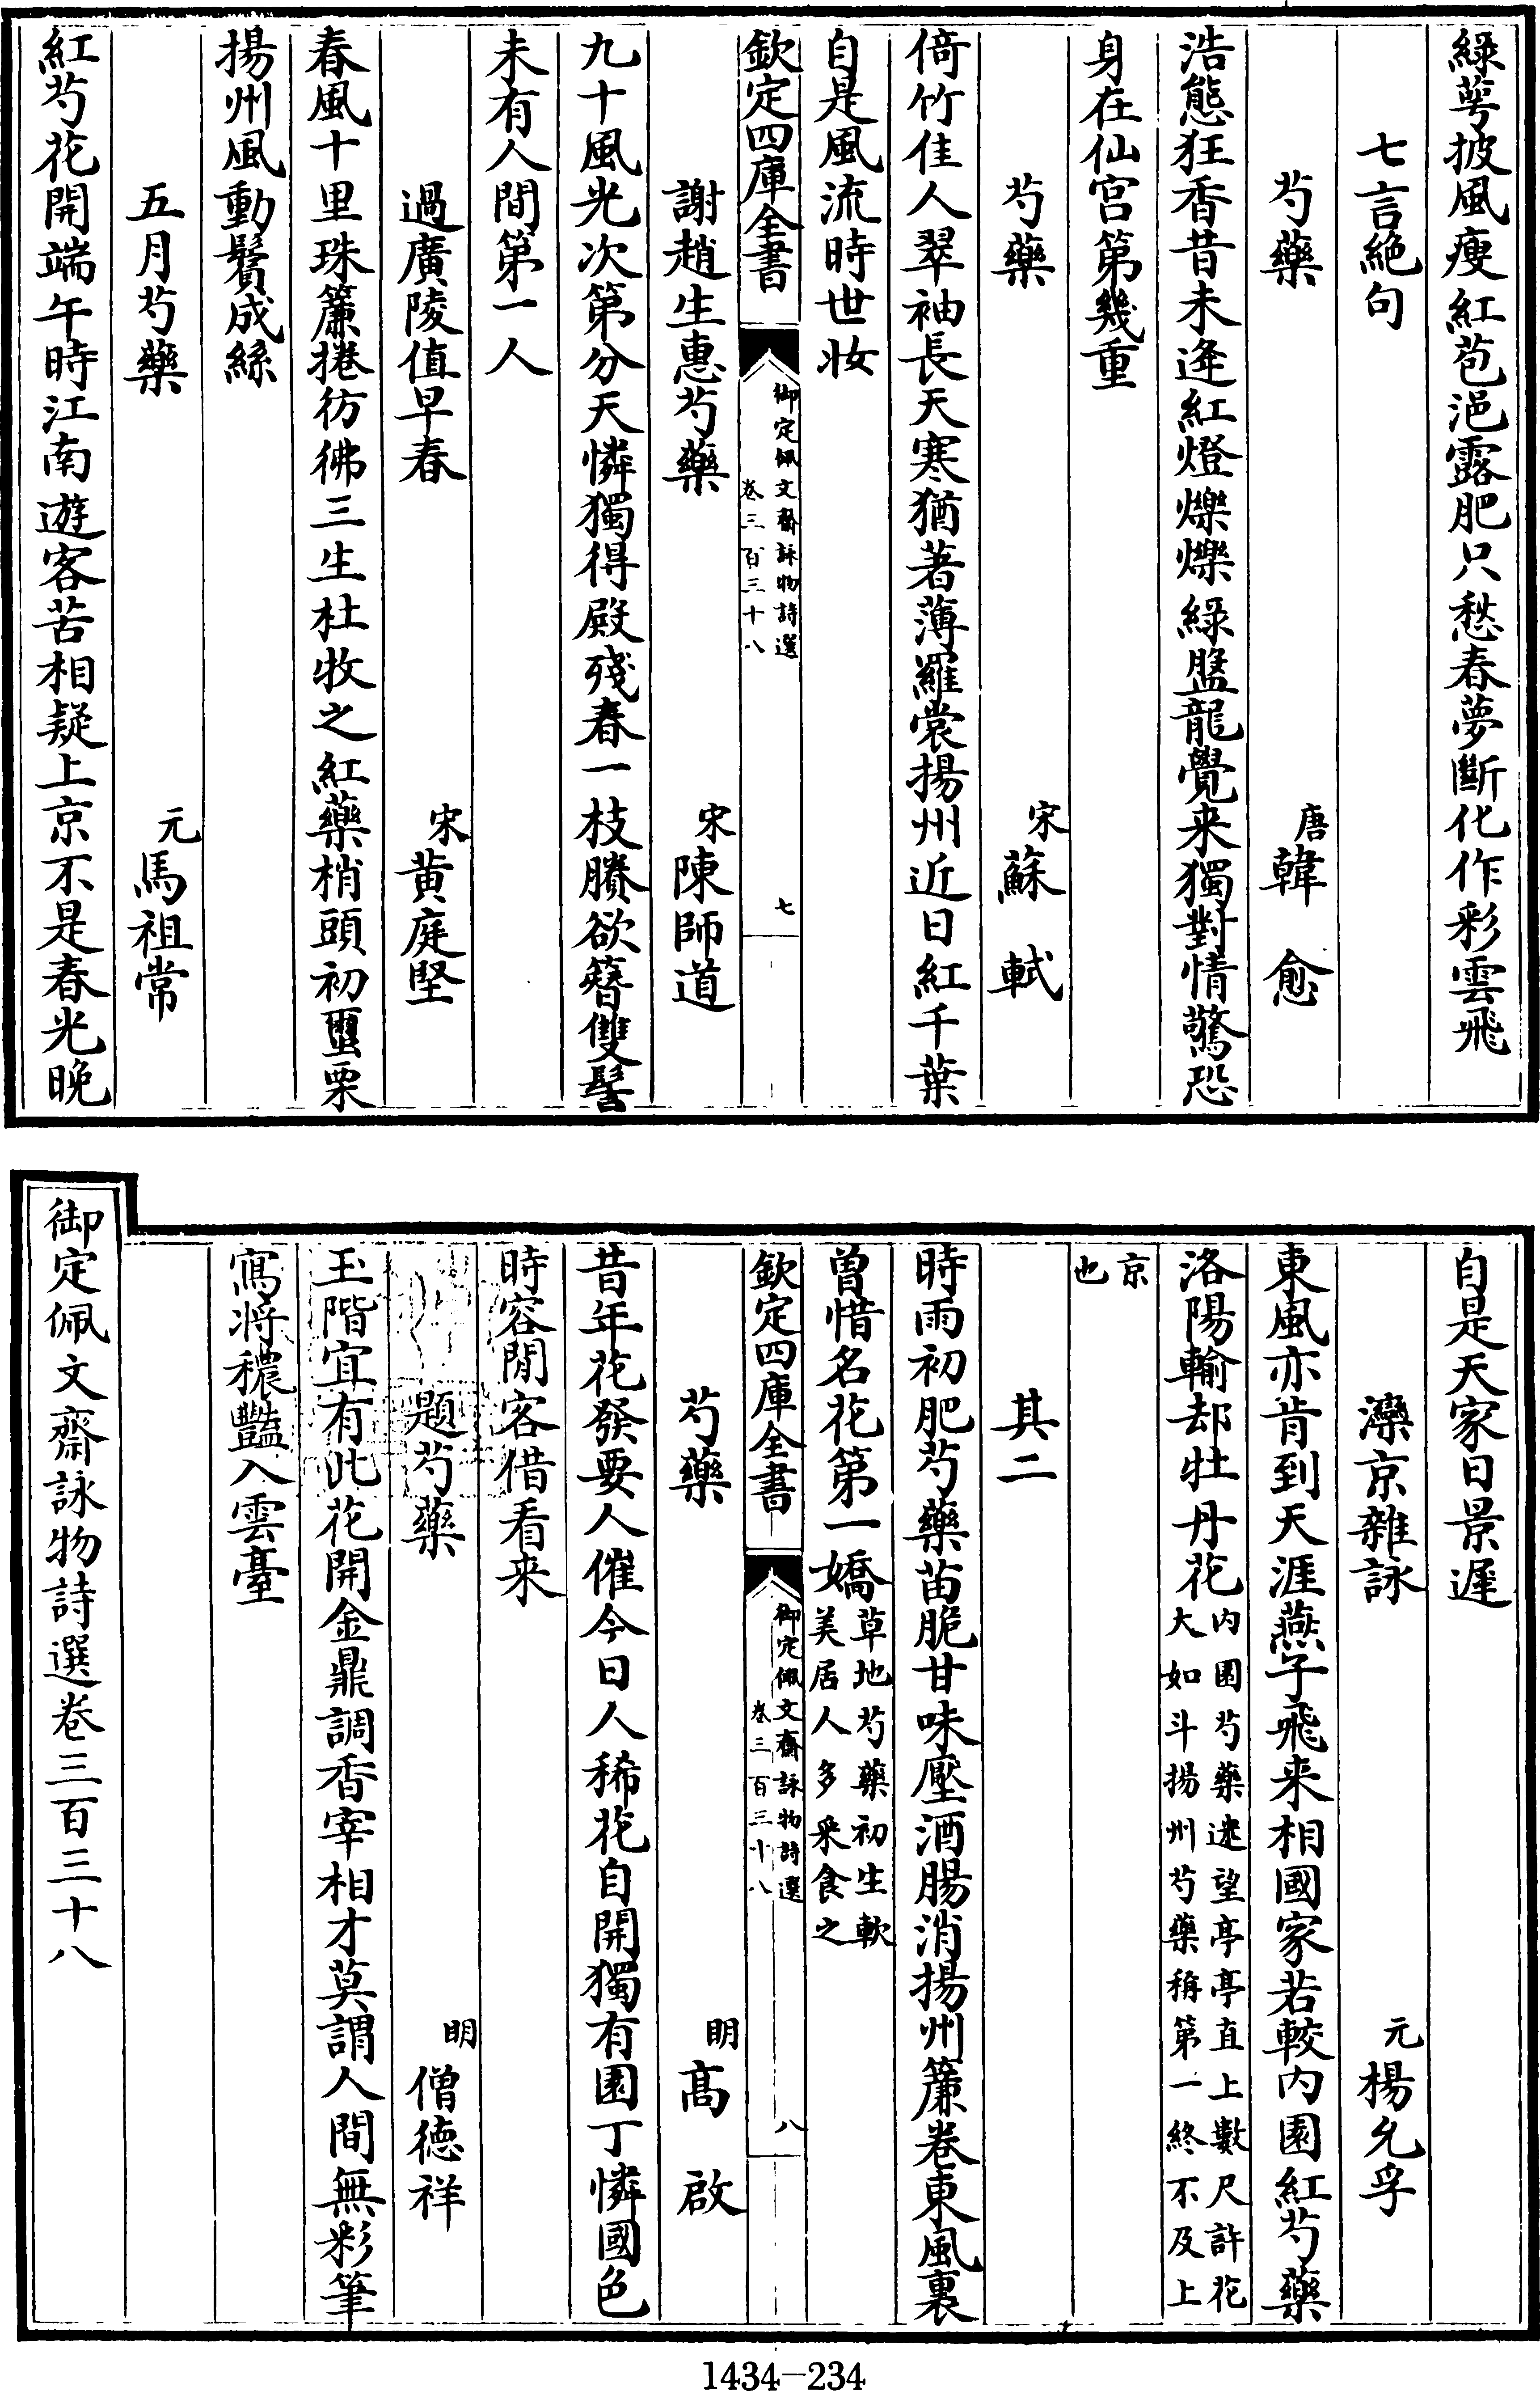 綠萼披風瘦紅苞浥露肥只愁春夢斷化作彩雲飛
七言絶句
芍藥　唐韓愈
浩態狂香昔未逢紅燈爍爍綠盤龍覺来獨對情驚恐
身在仙宫第幾重
芍藥　宋蘇軾
倚竹佳人翠袖長天寒猶著薄羅裳揚州近日紅千葉
自是風流時世妝
欽定四庫全書
御定佩文齋詠物詩選
卷三百三十八
七
謝趙生惠芍藥　宋陳師道
九十風光次第分天憐獨得殿殘春一枝賸欲簪雙髻
未有人間第一人
過廣陵值早春　宋黄庭堅
春風十里珠簾捲彷彿三生杜牧之紅藥梢頭初璽栗
揚州風動鬢成絲
五月芍藥　元馬祖常
紅芍花開端午時江南遊客苦相疑上京不是春光晚
自是天家日景遲
灤京雜詠　元楊允孚
東風亦肯到天涯燕子飛来相國家若較内園紅芍藥
洛陽輸却牡丹花内園芍藥迷望亭亭直上數尺許花大如斗揚州芍藥稱第一終不及上
京也
其二
時雨初肥芍藥苗脆甘味壓酒腸消揚州簾卷東風裏
曾惜名花第一嬌草地芍藥初生軟美居人多采食之
欽定四庫全書
御定佩文齋詠物詩選
卷三百三十八
八
芍藥　明高啟
昔年花發要人催今日人稀花自開獨有園丁憐國色
時容閒客借看来
題芍藥　明僧德祥
玉階宜有此花開金鼎調香宰相才莫謂人間無彩筆
寫將穠豔入雲臺
御定佩文齋詠物詩選卷三百三十八
1434-234